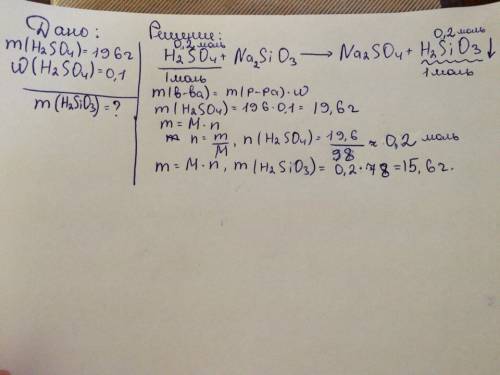 Дано:
m(H₂SO₄)=196г
ω(H₂SO₄)=0,1
m(H₂SiO₃)=?
Решение:
0,2 моль 0,2 моль
H₂SO₄+Na₂SiO₃→Na₂SO₄+H₂SiO₃↓
1моль 1 моль
m(в-ва)=m(р-ра)·ω
m(H₂SO₄)=196·0,1=19,6г
m=M·n
n=m/M, n(H₂SO₄)=19,6/98≈0,2 моль
m=M·n, m(H₂SiO₃)=0,2·78=15,6г.